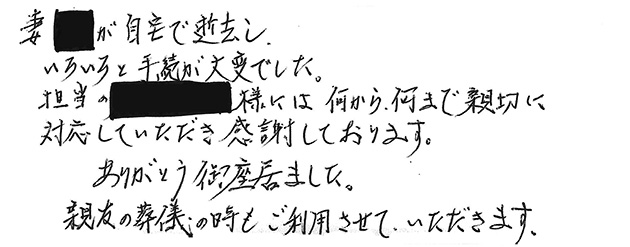 妻 が自宅で逝去し、
いろいろと手続が大変でした。
担当の 様には何から何まで親切に
対応していただき感謝しております。
ありがとう御座居ました。
親友の葬儀の時もご利用させていただきます。